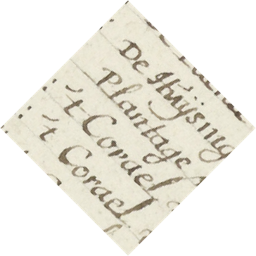 De Huÿsing
Plantage
't Corael
't Corael